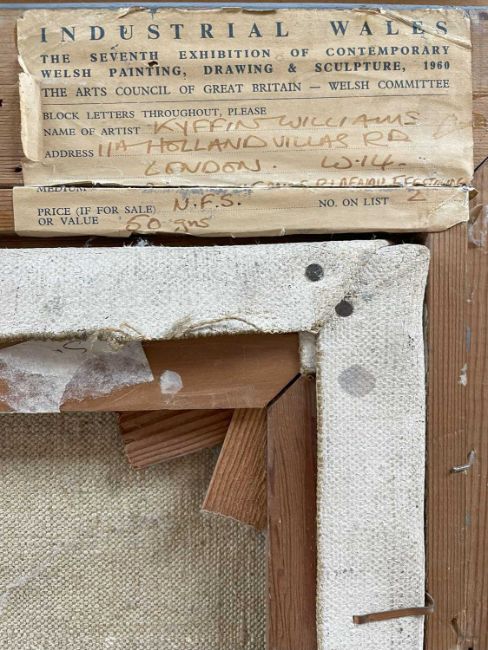 INDUSTRIAL WALES
THE SEVENTH EXHIBITION OF CONTEMPORARY
WELSH PAINTING, DRAWING & SCULPTURE, 1960
THE ARTS COUNCIL OF GREAT BRITAIN — WELSH COMMITTEE
BLOCK LETTERS THROUGHOUT, PLEASE
NAME OF ARTIST KYFFIN WILLIAMS
ADDRESS 11A HOLLAND VILLAS RD
LONDON. W.14.
MEDIUM
PRICE (IF FOR SALE) N.F.S. NO. ON LIST 2
OR VALUE 60 gns